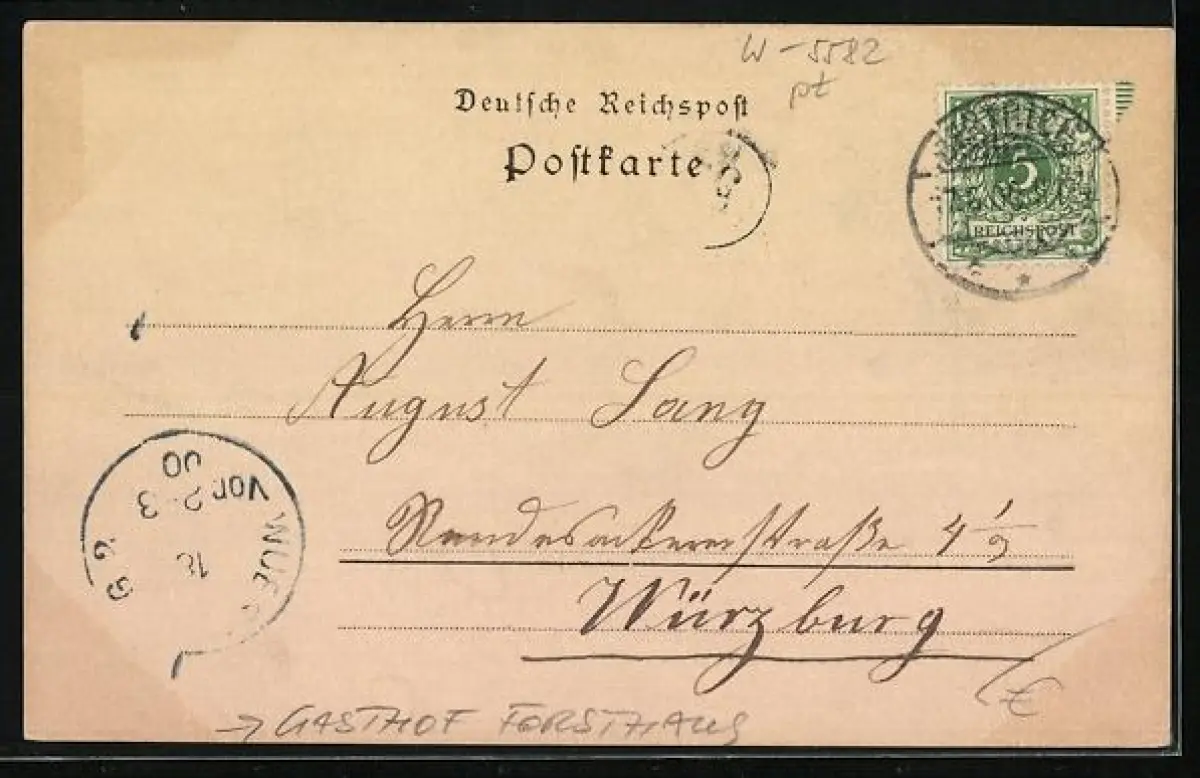 W-5582
pt
Deutsche Reichspost
Postkarte
5
REICHSPOST
Herrn
August Lang
Randesackererstraße 4 1/2
Würzburg
WUE
Vor 2-3
00
→ GASTHOF FORSTHAUS